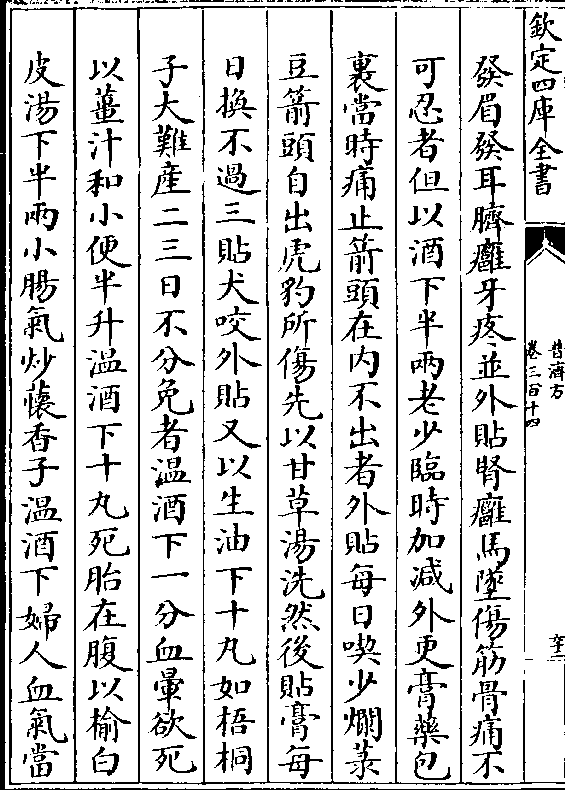 欽定四庫全書
普濟方
卷三百十四
發眉發耳臍癰牙疼並外貼腎癰馬墜傷筋骨痛不
可忍者但以酒下半兩老少臨時加減外更膏藥包
裹當時痛止箭頭在内不出者外貼每日喫少爛菉
豆箭頭自出虎豹所傷先以甘草湯洗然後貼膏每
日換不過三貼犬咬外貼又以生油下十丸如梧桐
子大難産二三日不分免者温酒下一分血暈欲死
以薑汁和小便半升温酒下十丸死胎在腹以榆白
皮湯下半兩小腸氣炒懐香子温酒下婦人血氣當